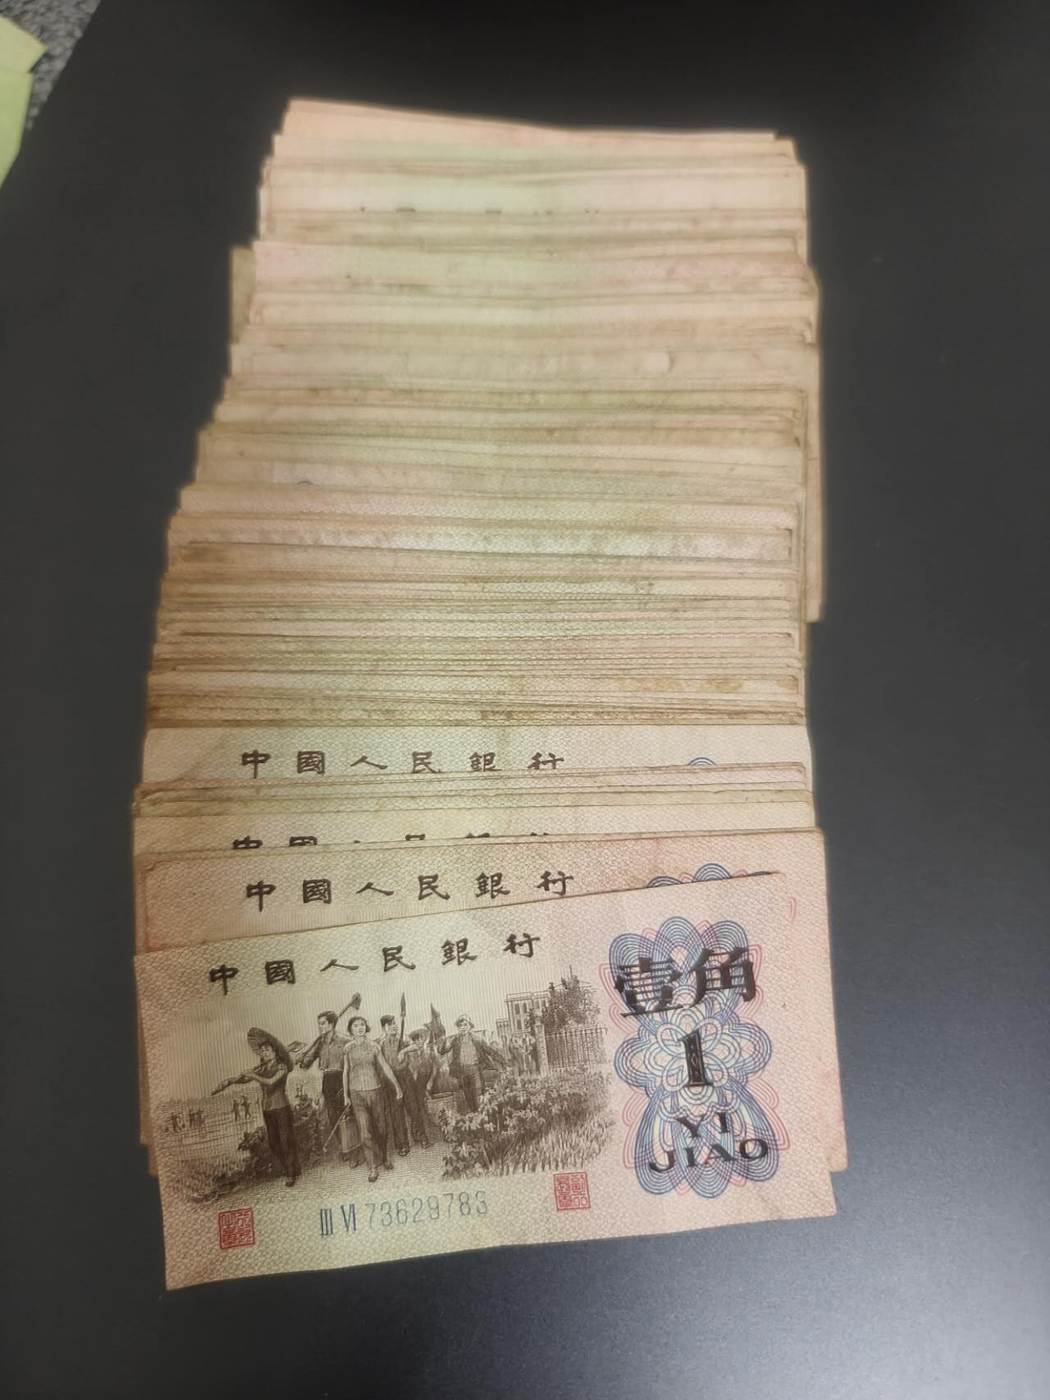 中國人民銀行
中國人民銀行
中國人民銀行
壹角
1
YI
JIAO
III VI 7362978